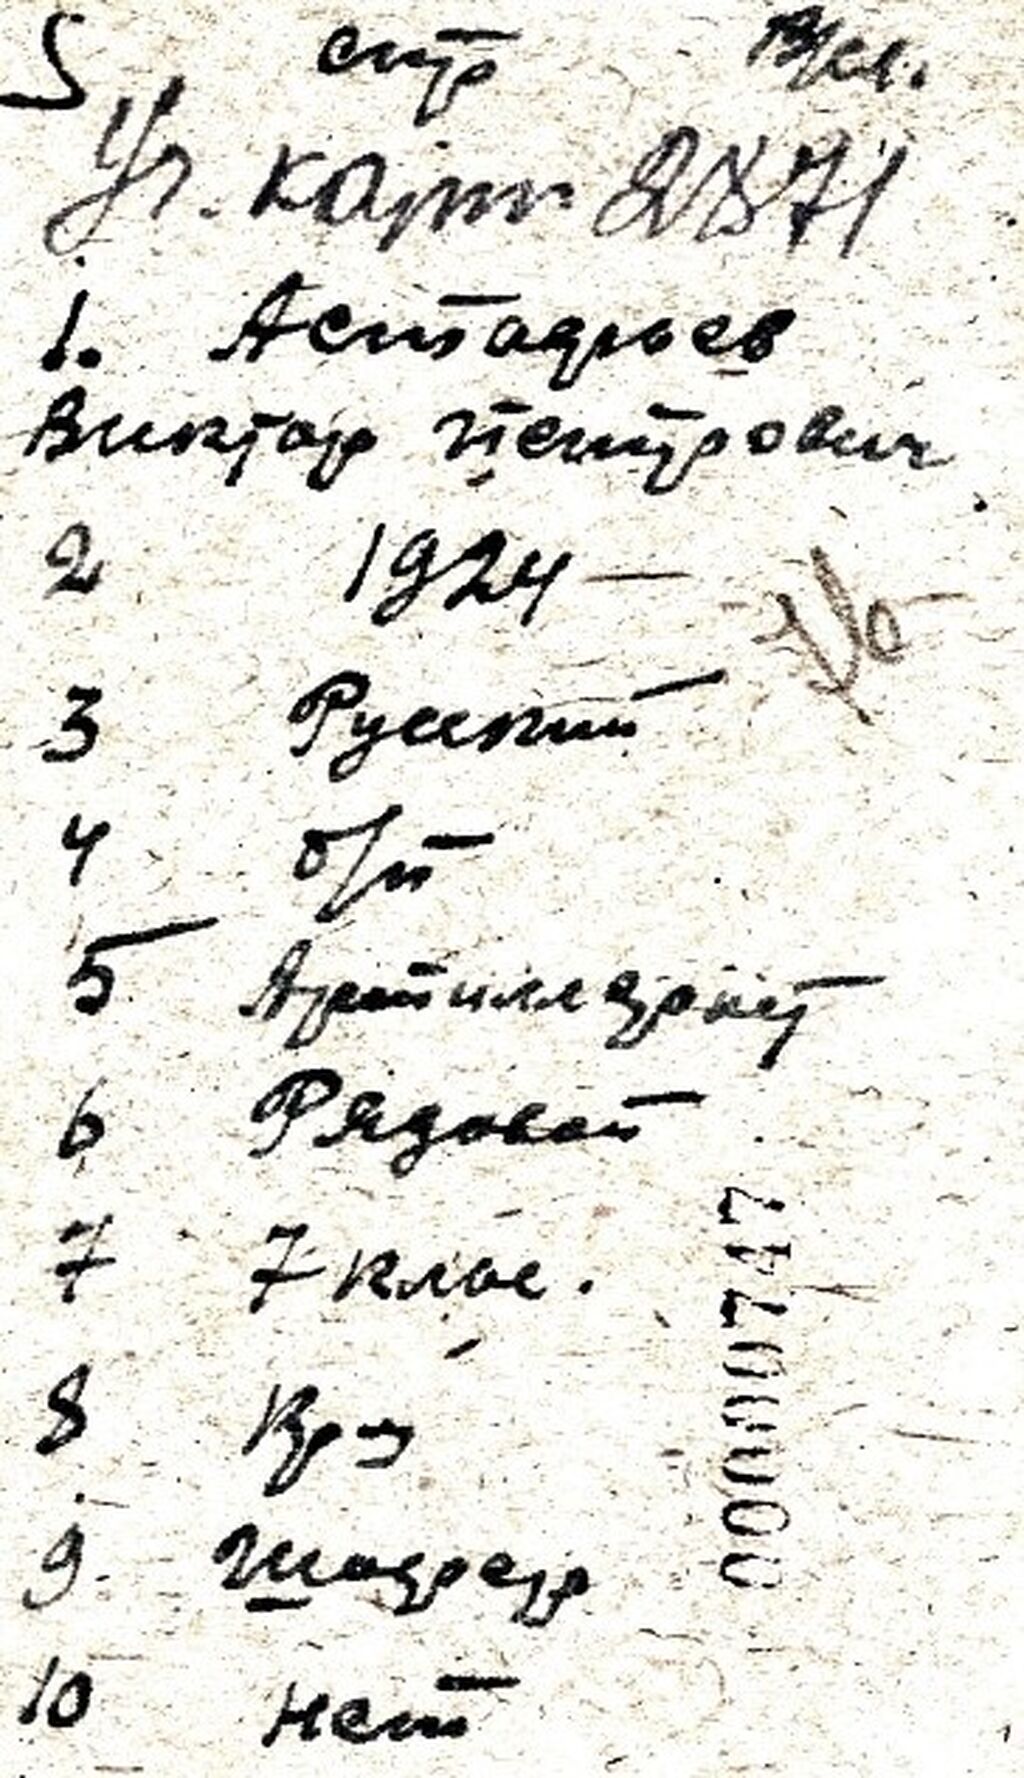 5 стр
Уч. карт 2871
1. Астафьев
Виктор Петрович
2 1924
3 Русский
4 б/п
5 Артиллерист
6 Рядовой
7 7 клас.
8 Кр-з
9. Шофер
10 Нет
00000747